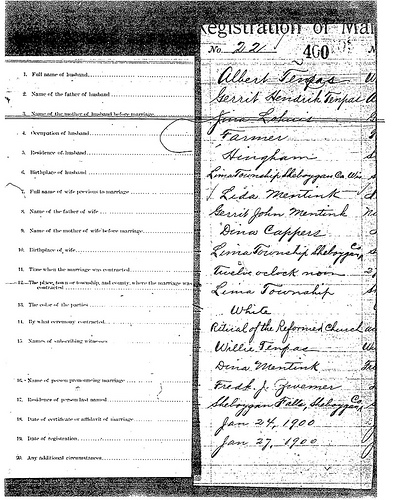 Registration of Mar
No. 221 400 N
1. Full name of husband Albert Tenpas
2. Name of the father of husband Gerrit Hendrik Tenpas
3. Name of the mother of husband before marriage
4. Occupation of husband Farmer
5. Residence of husband Hingham
6. Birthplace of husband Lima Township Sheboygan Co. Wis
7. Full name of wife previous to marriage Lida Mentink
8. Name of the father of wife Gerrit John Mentink
9. Name of the mother of wife before marriage Dina Cappers
10. Birthplace of wife Lima Township Sheboygan Co
11. Time when the marriage was contracted Twelve oclock noon
12. The place, town or township, and county, where the marriage was contracted Lima Township
13. The color of the parties White
14. By what ceremony contracted Ritual of the Reformed Church
15. Names of subscribing witnesses Willie Tenpas
Dina Mentink
16. Name of person pronouncing marriage Fredk. J. Zwemer
17. Residence of person last named Sheboygan Falls, Sheboygan Co
18. Date of certificate or affidavit of marriage Jan 24, 1900
19. Date of registration Jan 27, 1900
20. Any additional circumstances